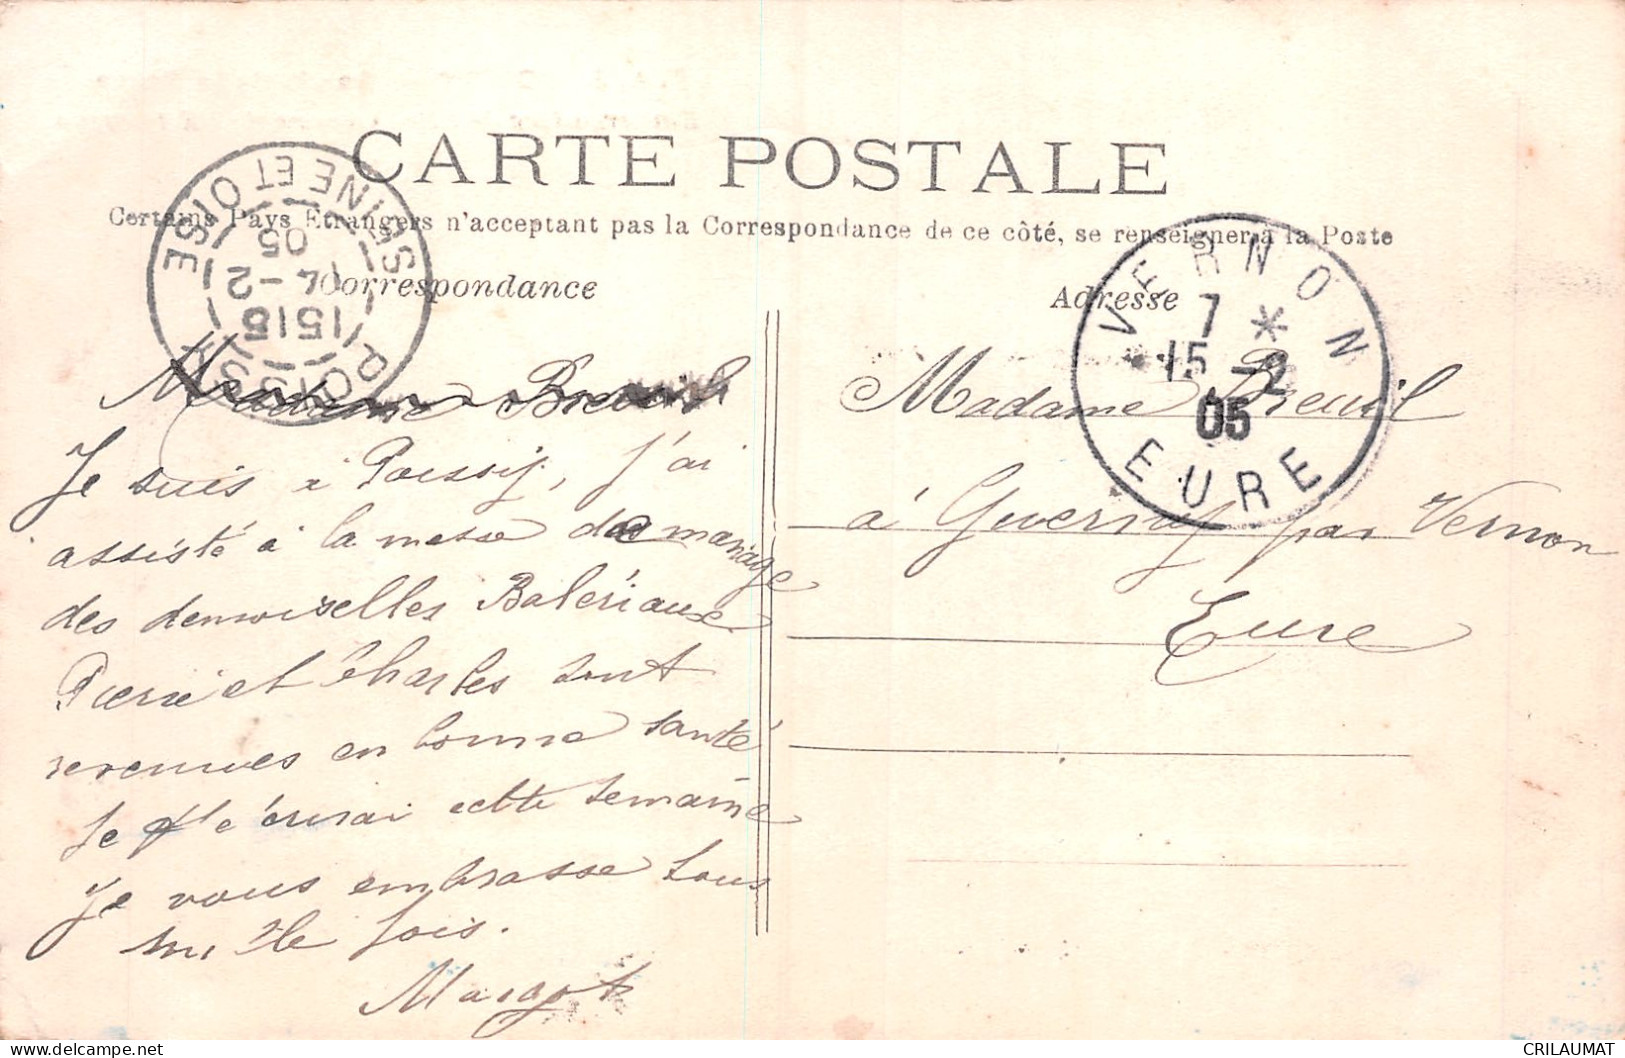 CARTE POSTALE
Certains Pays Etrangers n'acceptant pas la Correspondance de ce côté, se renseigner à la Poste
Correspondance
Adresse
POISSY
SEINE ET OISE
15 15
14 - 2
05
VERNON
7 *
15 - 2
05
EURE
Madame Breuil
Je suis à Poissy, j'ai
assisté à la messe de mariage
des demoiselles Balériaux
Pierre et Charles sont
revenues en bonne santé
Je te écrirai cette semaine
Je vous embrasse tous
mille fois.
Margot
Madame Breuil
à Guerny par Vernon
Eure
CRILAUMAT